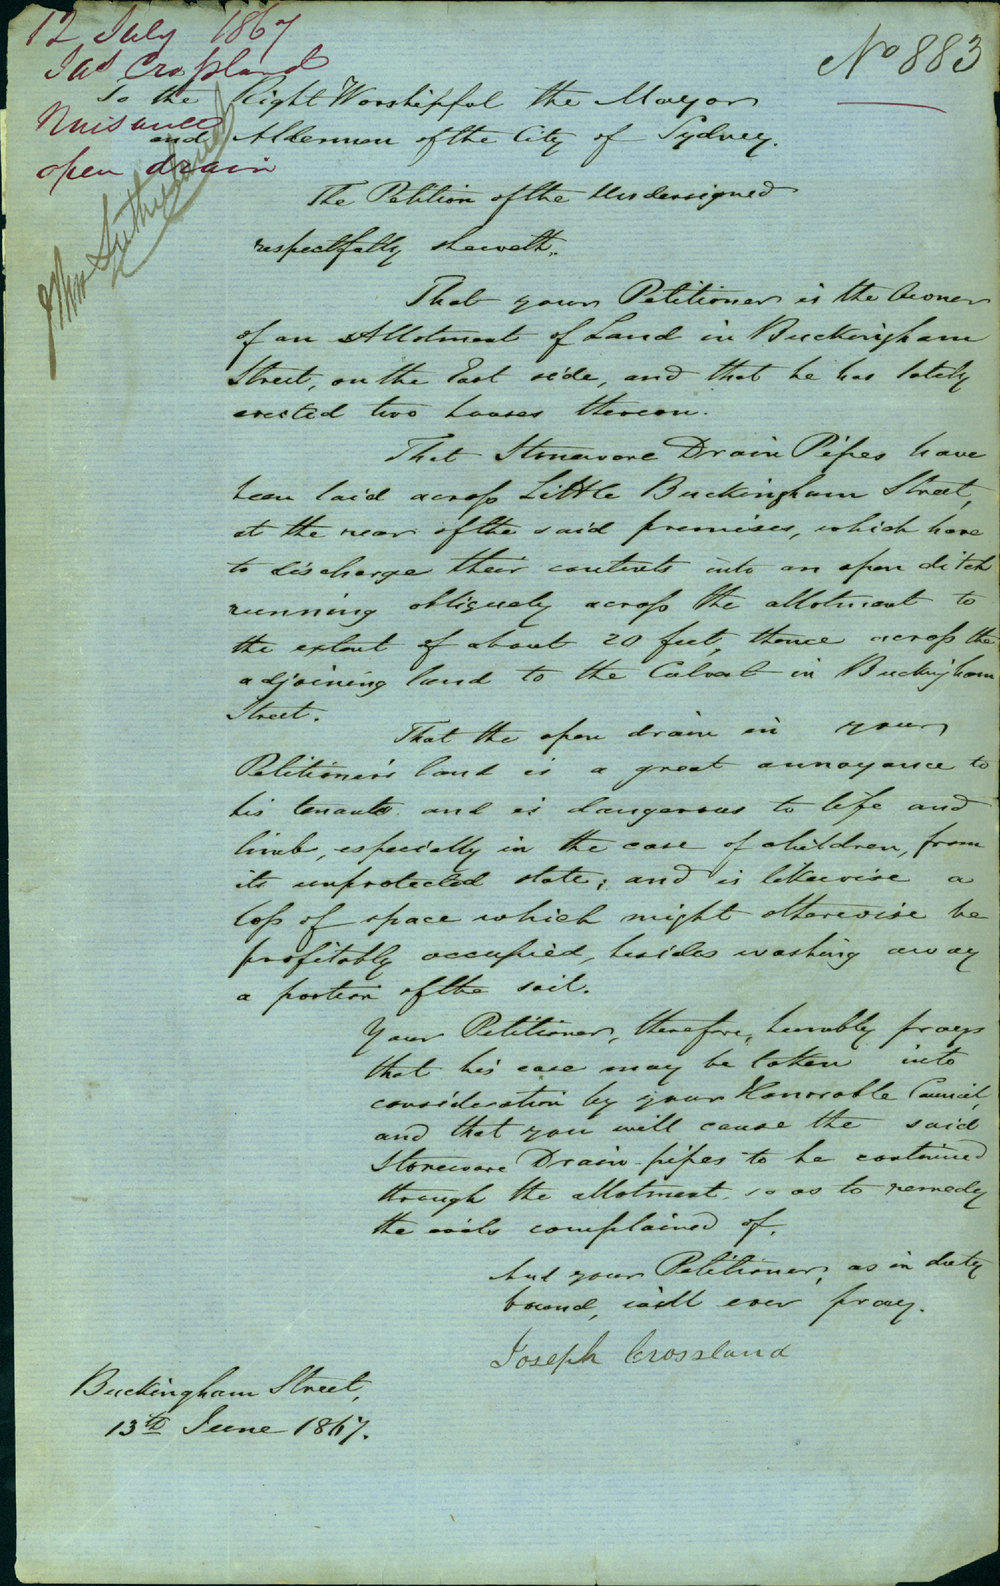 12 July 1867
Jas Crossland
Nuisance
open drain
No 883
John Sutherland
To the Right Worshipful the Mayor
and Aldermen of the City of Sydney.
The Petition of the Undersigned
respectfully sheweth,
That your Petitioner is the Owner
of an Allotment of Land in Buckingham
Street, on the East side, and that he has lately
erected two houses thereon.
That Stoneware Drain Pipes have
been laid across Little Buckingham Street,
at the rear of the said premises, which have
to discharge their contents into an open ditch
running obliquely across the allotment to
the extent of about 20 feet, thence across the
adjoining land to the Culvert in Buckingham
Street.
That the open drain in your
Petitioner's land is a great annoyance to
his tenants and is dangerous to life and
limb, especially in the case of children, from
its unprotected state; and is likewise a
loss of space which might otherwise be
profitably occupied, besides washing away
a portion of the soil.
Your Petitioner, therefore, humbly prays
that his case may be taken into
consideration by your Honorable Council,
and that you will cause the said
Stoneware Drain-pipes to be continued
through the allotment so as to remedy
the evils complained of.
And your Petitioner, as in duty
bound, will ever pray.
Joseph Crossland
Buckingham Street,
13th June 1867.